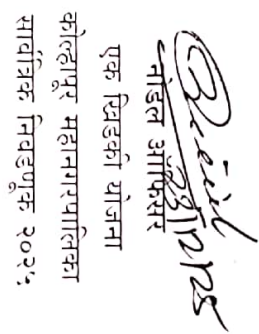 23/12/25
नोडल ऑफिसर
एक खिडकी योजना
कोल्हापूर महानगरपालिका
सार्वत्रिक निवडणूक २०२५